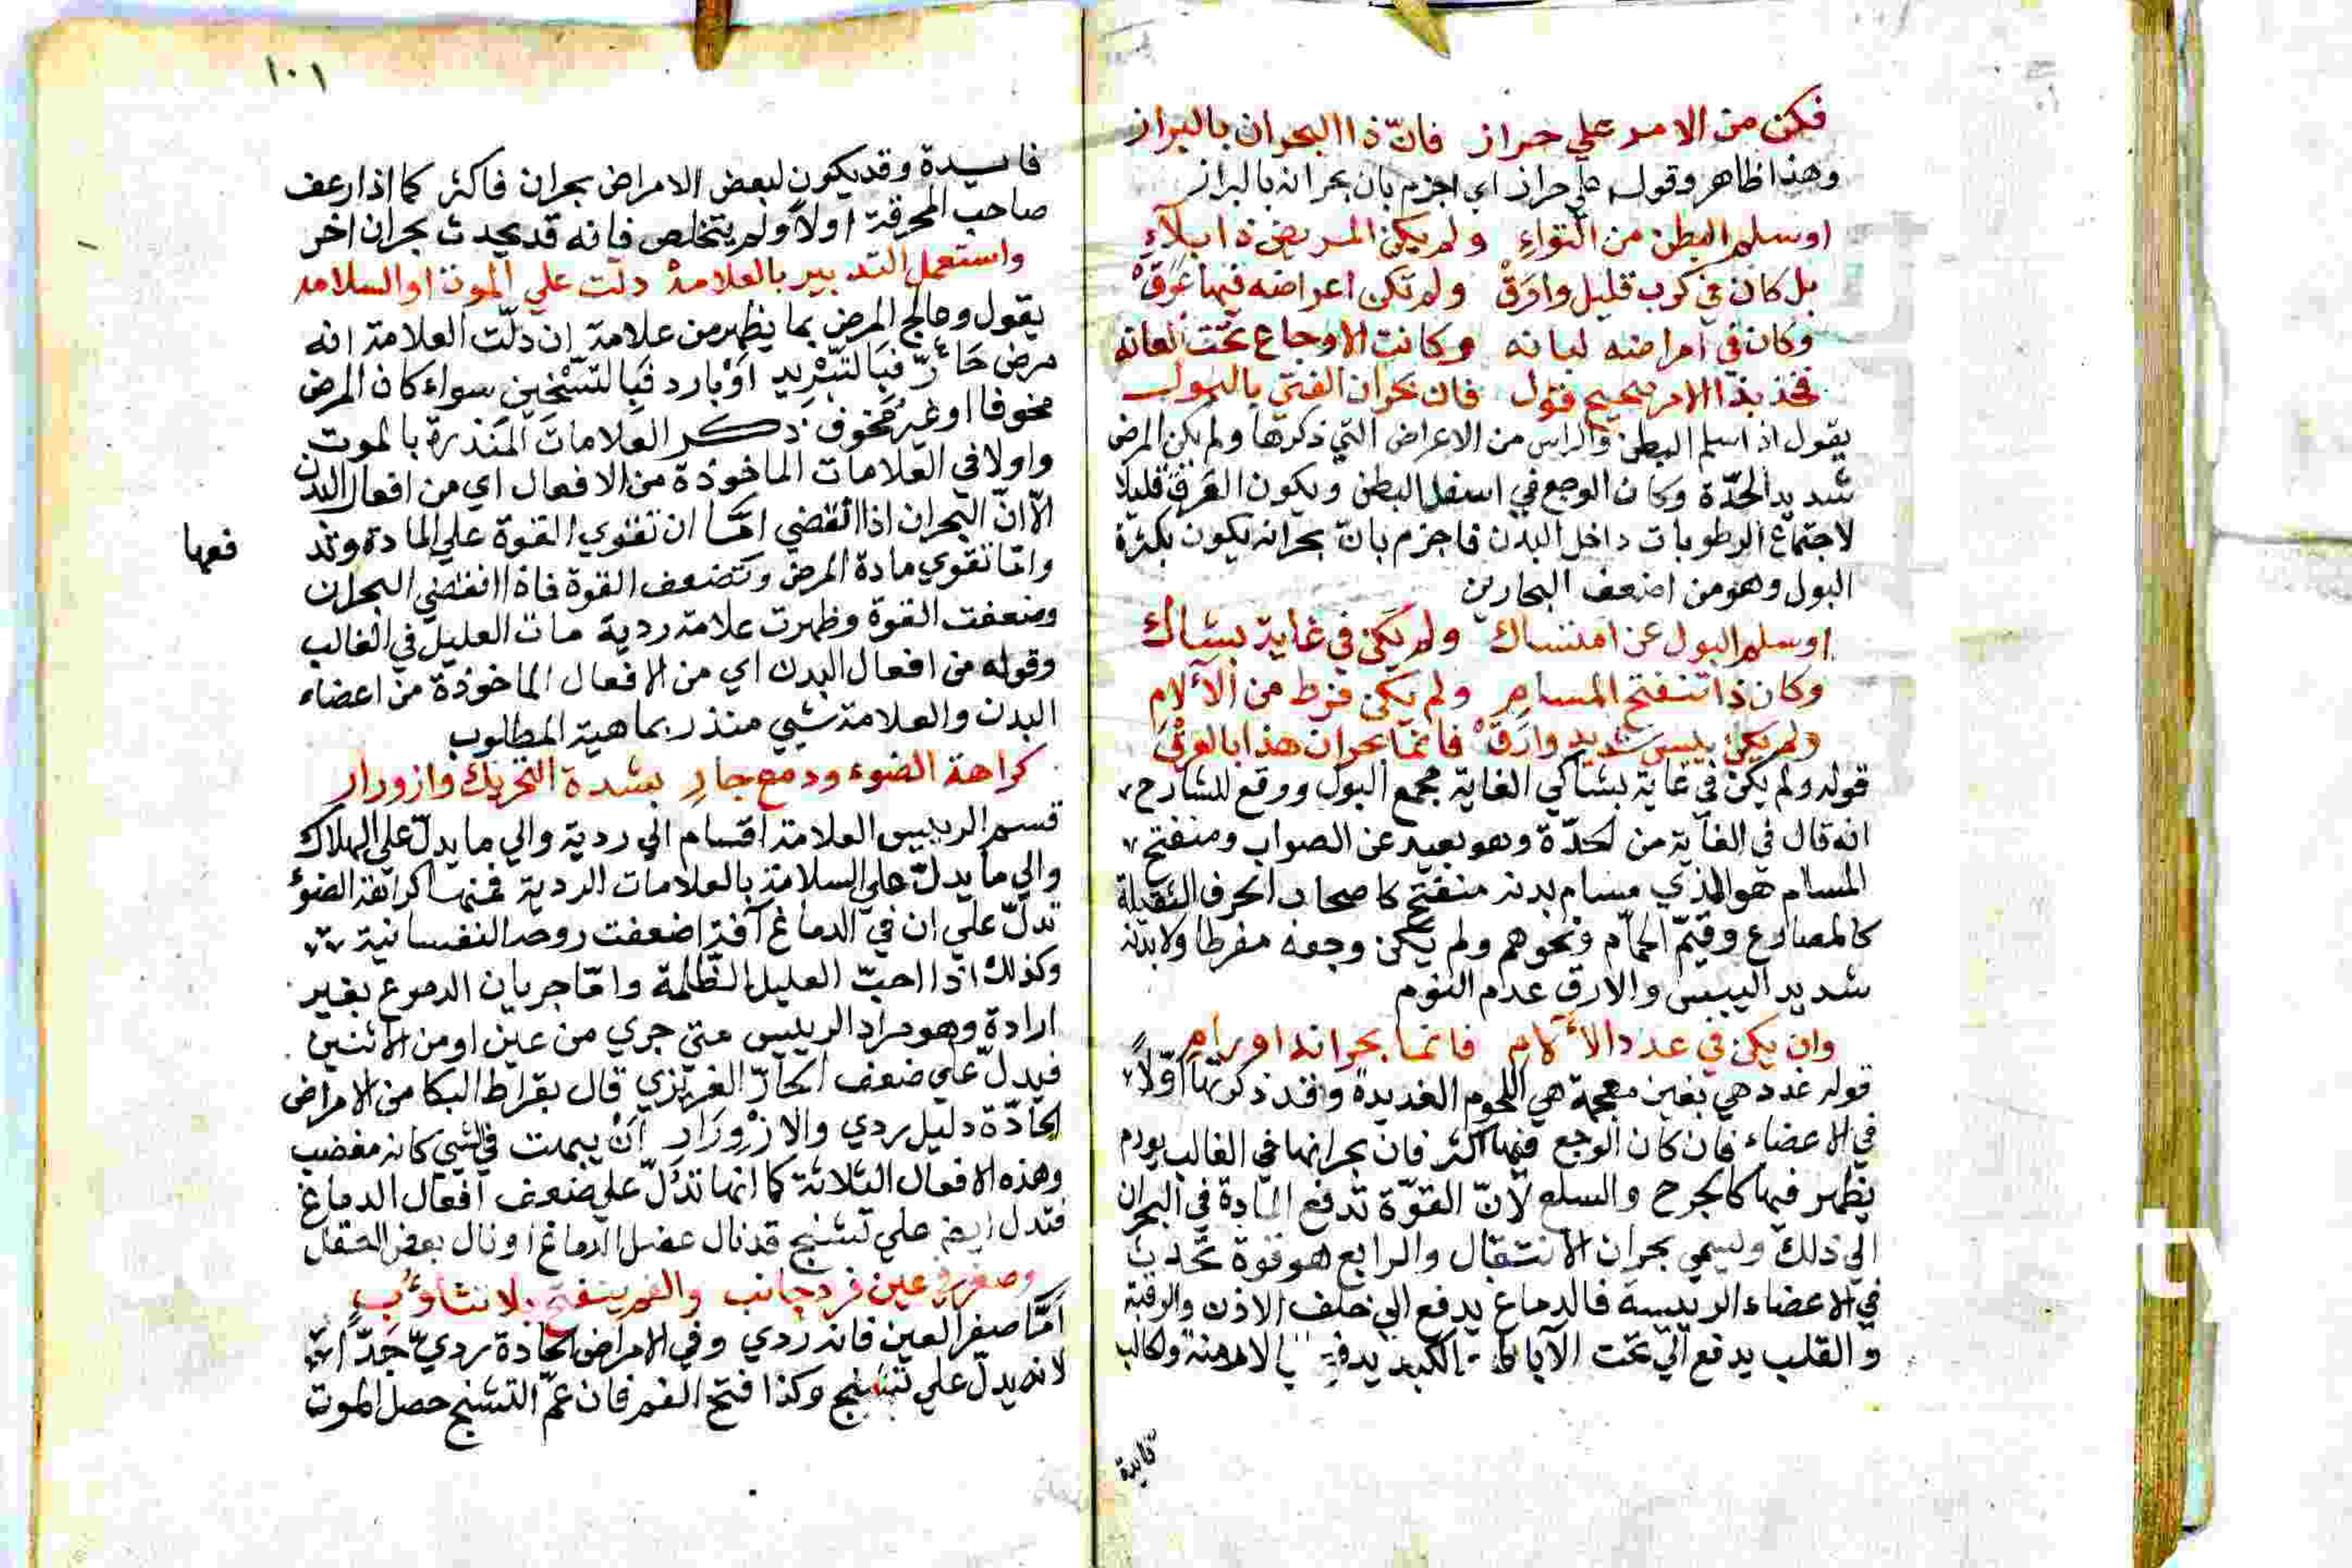 فكن من الامر علي حراز فانّ ذا البحران بالبراز
وهذا ظاهر وقوله علي حراز اي اجزم بان بحرانه بالبراز
او سلم البطن من التواءِ ولم يكن المريض ذا بلاءِ
بل كان في كرب قليل وارقْ ولم تكن اعراضه فيها غرقْ
وكان في امراضه لبانه وكانت الاوجاع تحت العانه
فخذ بذا الامر صحيح قول فان بحران الفتي بالبول
يقول اذا سلم البطن والراس من الاعراض التي ذكرها ولم يكن المرض
شديد الحدّة وكان الوجع في اسفل البطن ويكون العرق قليلا
لاجتماع الرطوبات داخل البدن فاجزم بانّ بحرانه يكون بكثرة
البول وهو من اضعف البحارين
او سلم البول عن امتساك ولم يكن في غاية بشاك
وكان ذا تنفتح المسام ولم يكن فرط من الآلام
ولم يكن يبس شديد وارقْ فانما بحران هذا بالعرقْ
قوله ولم يكن في غاية بشاكي الغاية مجمع البول ووقع للشارح
انه قال في الغاية من الحدّة وهو بعيد عن الصواب ومنفتح
المسام هو الذي مسام بدنه منفتح كاصحاب الحرف الثقيلة
كالمصارع وقيّم الحمّام ونحوهم ولم يكن وجعه مفرطا ولا بدنه
شديد اليبس والارق عدم النوم
وان يكن في غدد الآلام فانما بحرانه اورام
قوله غدد هي بغين معجمة هي اللحوم الغديدة وقد ذكرتها اوّلاً
في الاعضاء فان كان الوجع فيها اكثر فان بحرانها في الغالب بورم
يظهر فيها كالجرح والسلع لانّ القوّة تدفع المادة في البحران
الي ذلك ويسمي بحران الانتقال والرابع هو قوة تحدث
في الاعضاء الرئيسة فالدماغ يدفع الي خلف الاذن والرقبة
والقلب يدفع الي تحت الآباط الكبد يدفع
فايدة
١٠١
فايدة وقد يكون لبعض الامراض بحران فاكثر كما اذا رعف
صاحب المحرقة اولاً ولم يتخلص فانه قد يحدث بحران اخر
واستعمل التدبير بالعلامهْ دلّت علي الموت او السلامه
يقول وعالج المرض بما يظهر من علامة ان دلّت العلامة انه
مرض حَارّ فبَالتبْرِيد اوْ بارد فبَالتسْخين سواء كان المرض
مخوفا او غير مخوف ذكر العلامات المنذرة بالموت
واولا في العلامات الماخوذة من الافعال اي من افعال البدن
الّا انّ البحران اذا انقضي امّا ان تقوي القوة علي المادة وتد
فعها
وامّا تقوي مادة المرض وتضعف القوة فاذا انقضي البحران
وضعفت القوة وظهرت علامة ردية مات العليل في الغالب
وقوله من افعال البدن اي من الافعال الماخوذة من اعضاء
البدن والعلامة شيي منذر بماهية المطلوب
كراهة الضوء ودمع جارِ بشدة التحريك وازورارِ
قسم الرييس العلامة اقسام الي ردية والي ما يدلّ علي الهلاك
والي ما يدلّ علي السلامة بالعلامات الردية فمنها كراهة الضوء
تدلّ علي ان في الدماغ آفة اضعفت روحه النفسانية
وكذلك اذا احبّ العليل الظلمة وامّا جريان الدموع بغير
ارادة وهو مراد الرييس متي جري من عين او من الاثنين
فيدلّ علي ضعف الحارّ الغريزي قال بقراط البكا من الامراض
الحادّة دليل ردي والازْوِرَار انْ يبهت في شيي كانه مغضب
وهذه الافعال الثلاثة كما انها تدُلّ علي ضعف افعال الدماغ
فتدل ايضا علي تشنج قد نال عضل الدماغ او نال بعض العضل
وصغر في عين فرد جانب والفم ينفتح بلا تثاوُبِ
امّا صغر العين فانه ردي وفي الامراض الحادة رديّ جدّا
لانه يدلّ علي تشنج وكذا فتح الفم فان عمّ التشنج حصل الموت